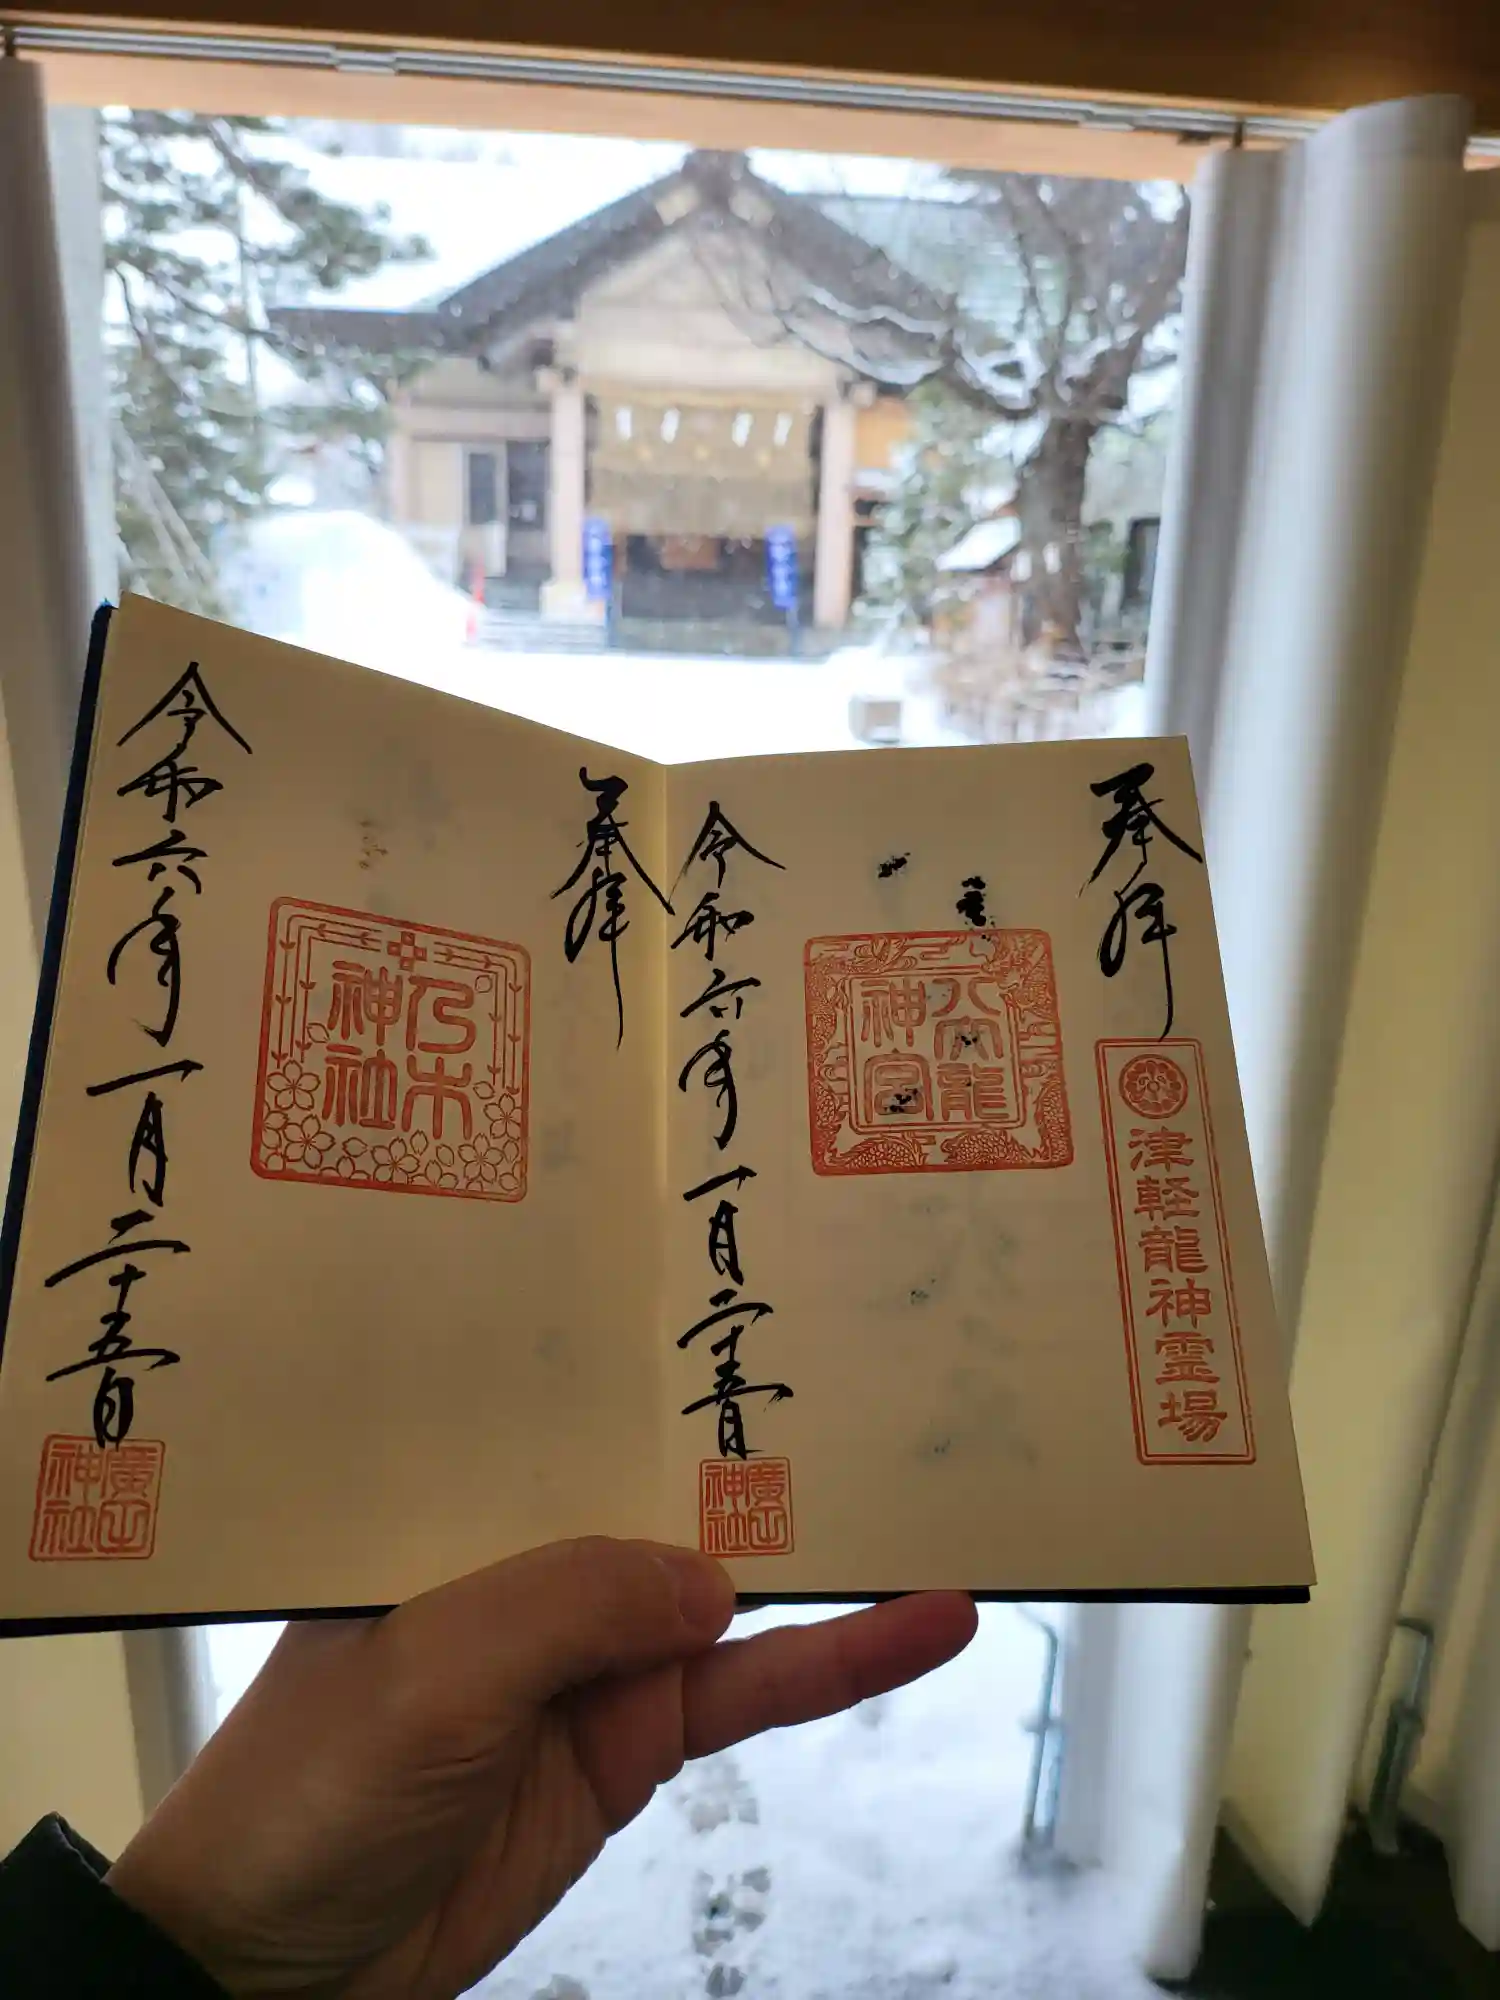 奉拝
津軽龍神霊場
八大龍神宮
令和六年一月二十五日
廣田神社
奉拝
乃木神社
令和六年一月二十五日
廣田神社